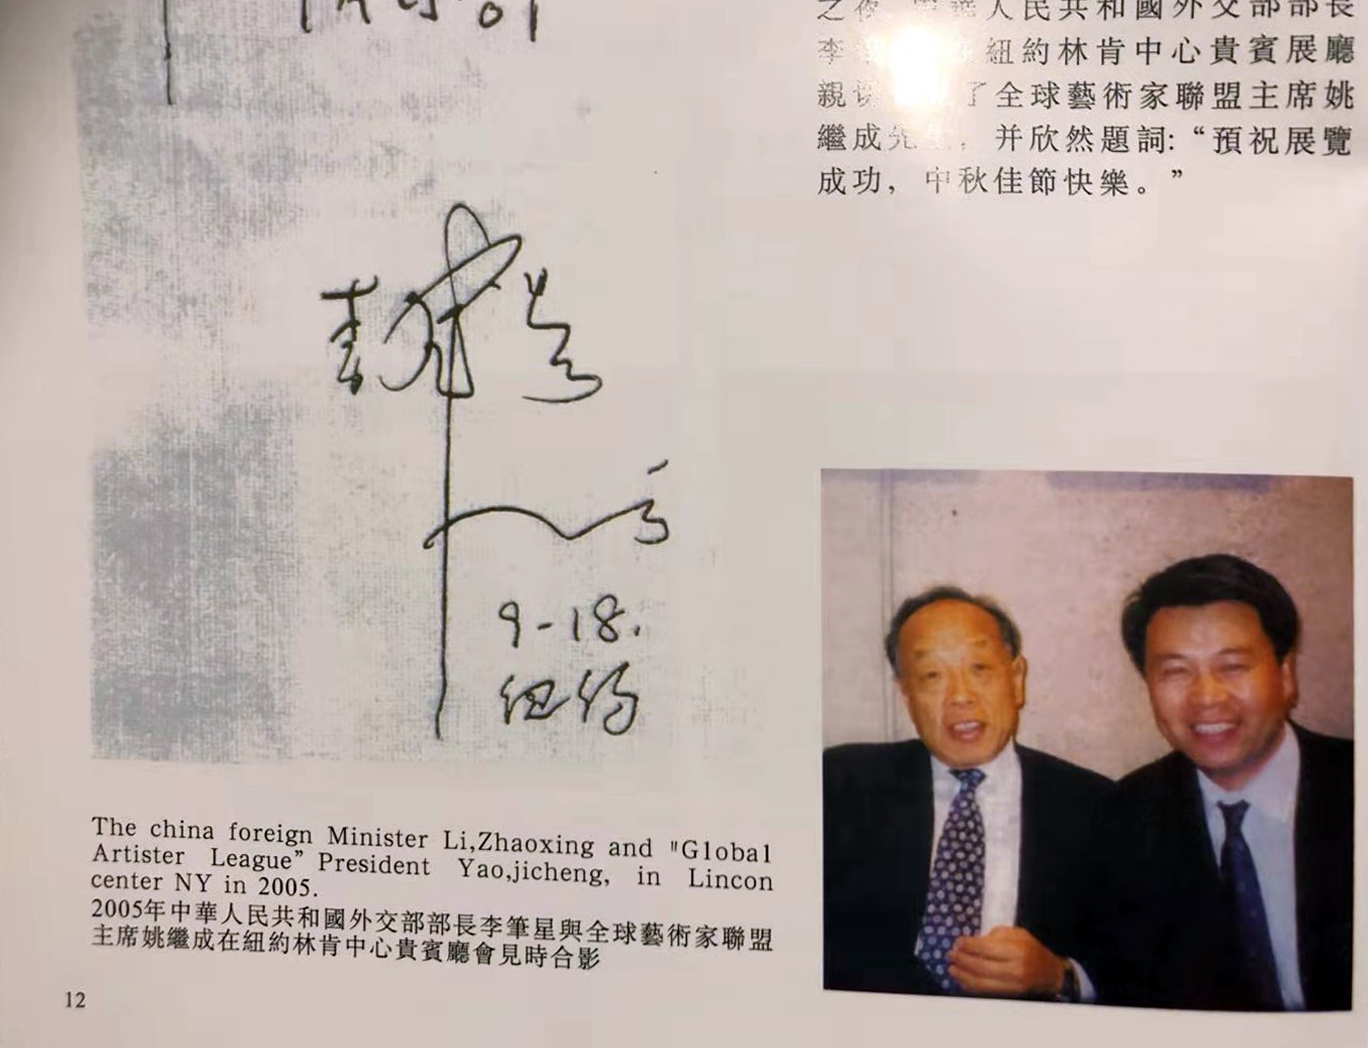 人民共和國外交部部長
李 紐約林肯中心貴賓展廳
親 了全球藝術家聯盟主席姚
繼成先生，并欣然題詞:“預祝展覽
成功，中秋佳節快樂。”
9-18.
纽约
The china foreign Minister Li,Zhaoxing and "Global
Artister League” President Yao,jicheng, in Lincon
center NY in 2005.
2005年中華人民共和國外交部部長李筆星與全球藝術家聯盟
主席姚繼成在紐約林肯中心貴賓廳會見時合影
12